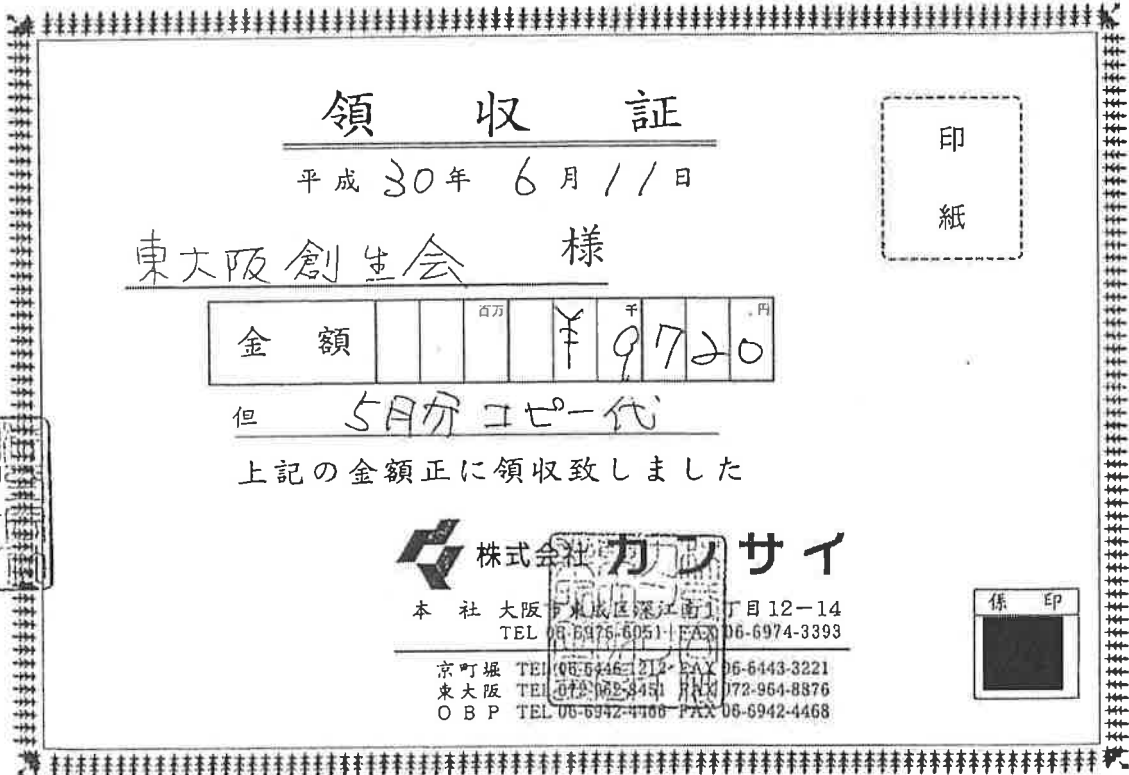 領収証
印紙
平成30年6月11日
東大阪創生会 様
金額 百万 千 円 ¥9720
但 5月分コピー代
上記の金額正に領収致しました
株式会社カンサイ
本社 大阪市東成区深江南1丁目12-14
TEL 06-6976-6051 FAX 06-6974-3393
係印
京町堀 TEL 06-6446-1212 FAX 06-6443-3221
東大阪 FAX 072-964-8876
OBP TEL 06-6942-4468 FAX 06-6942-4468